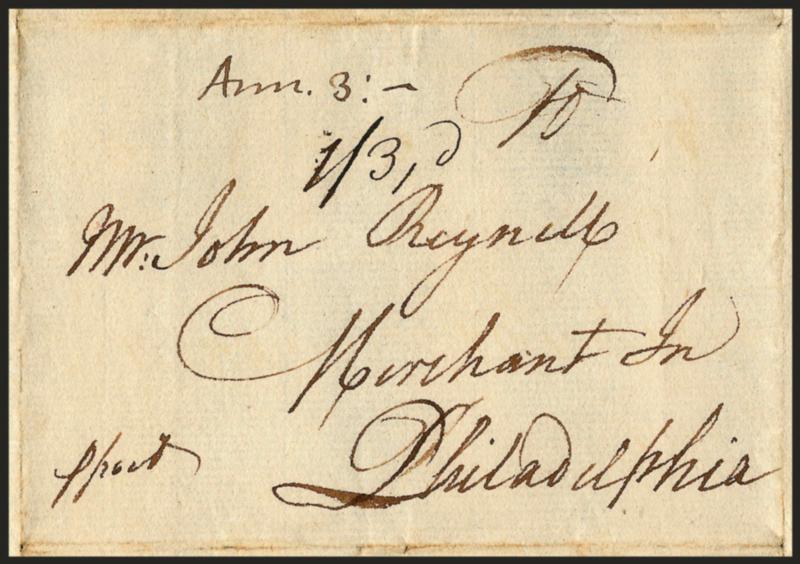 Ann. 3:-
To
1/3,d
Mr. John Reynell
Merchant In
Philadelphia
ppost